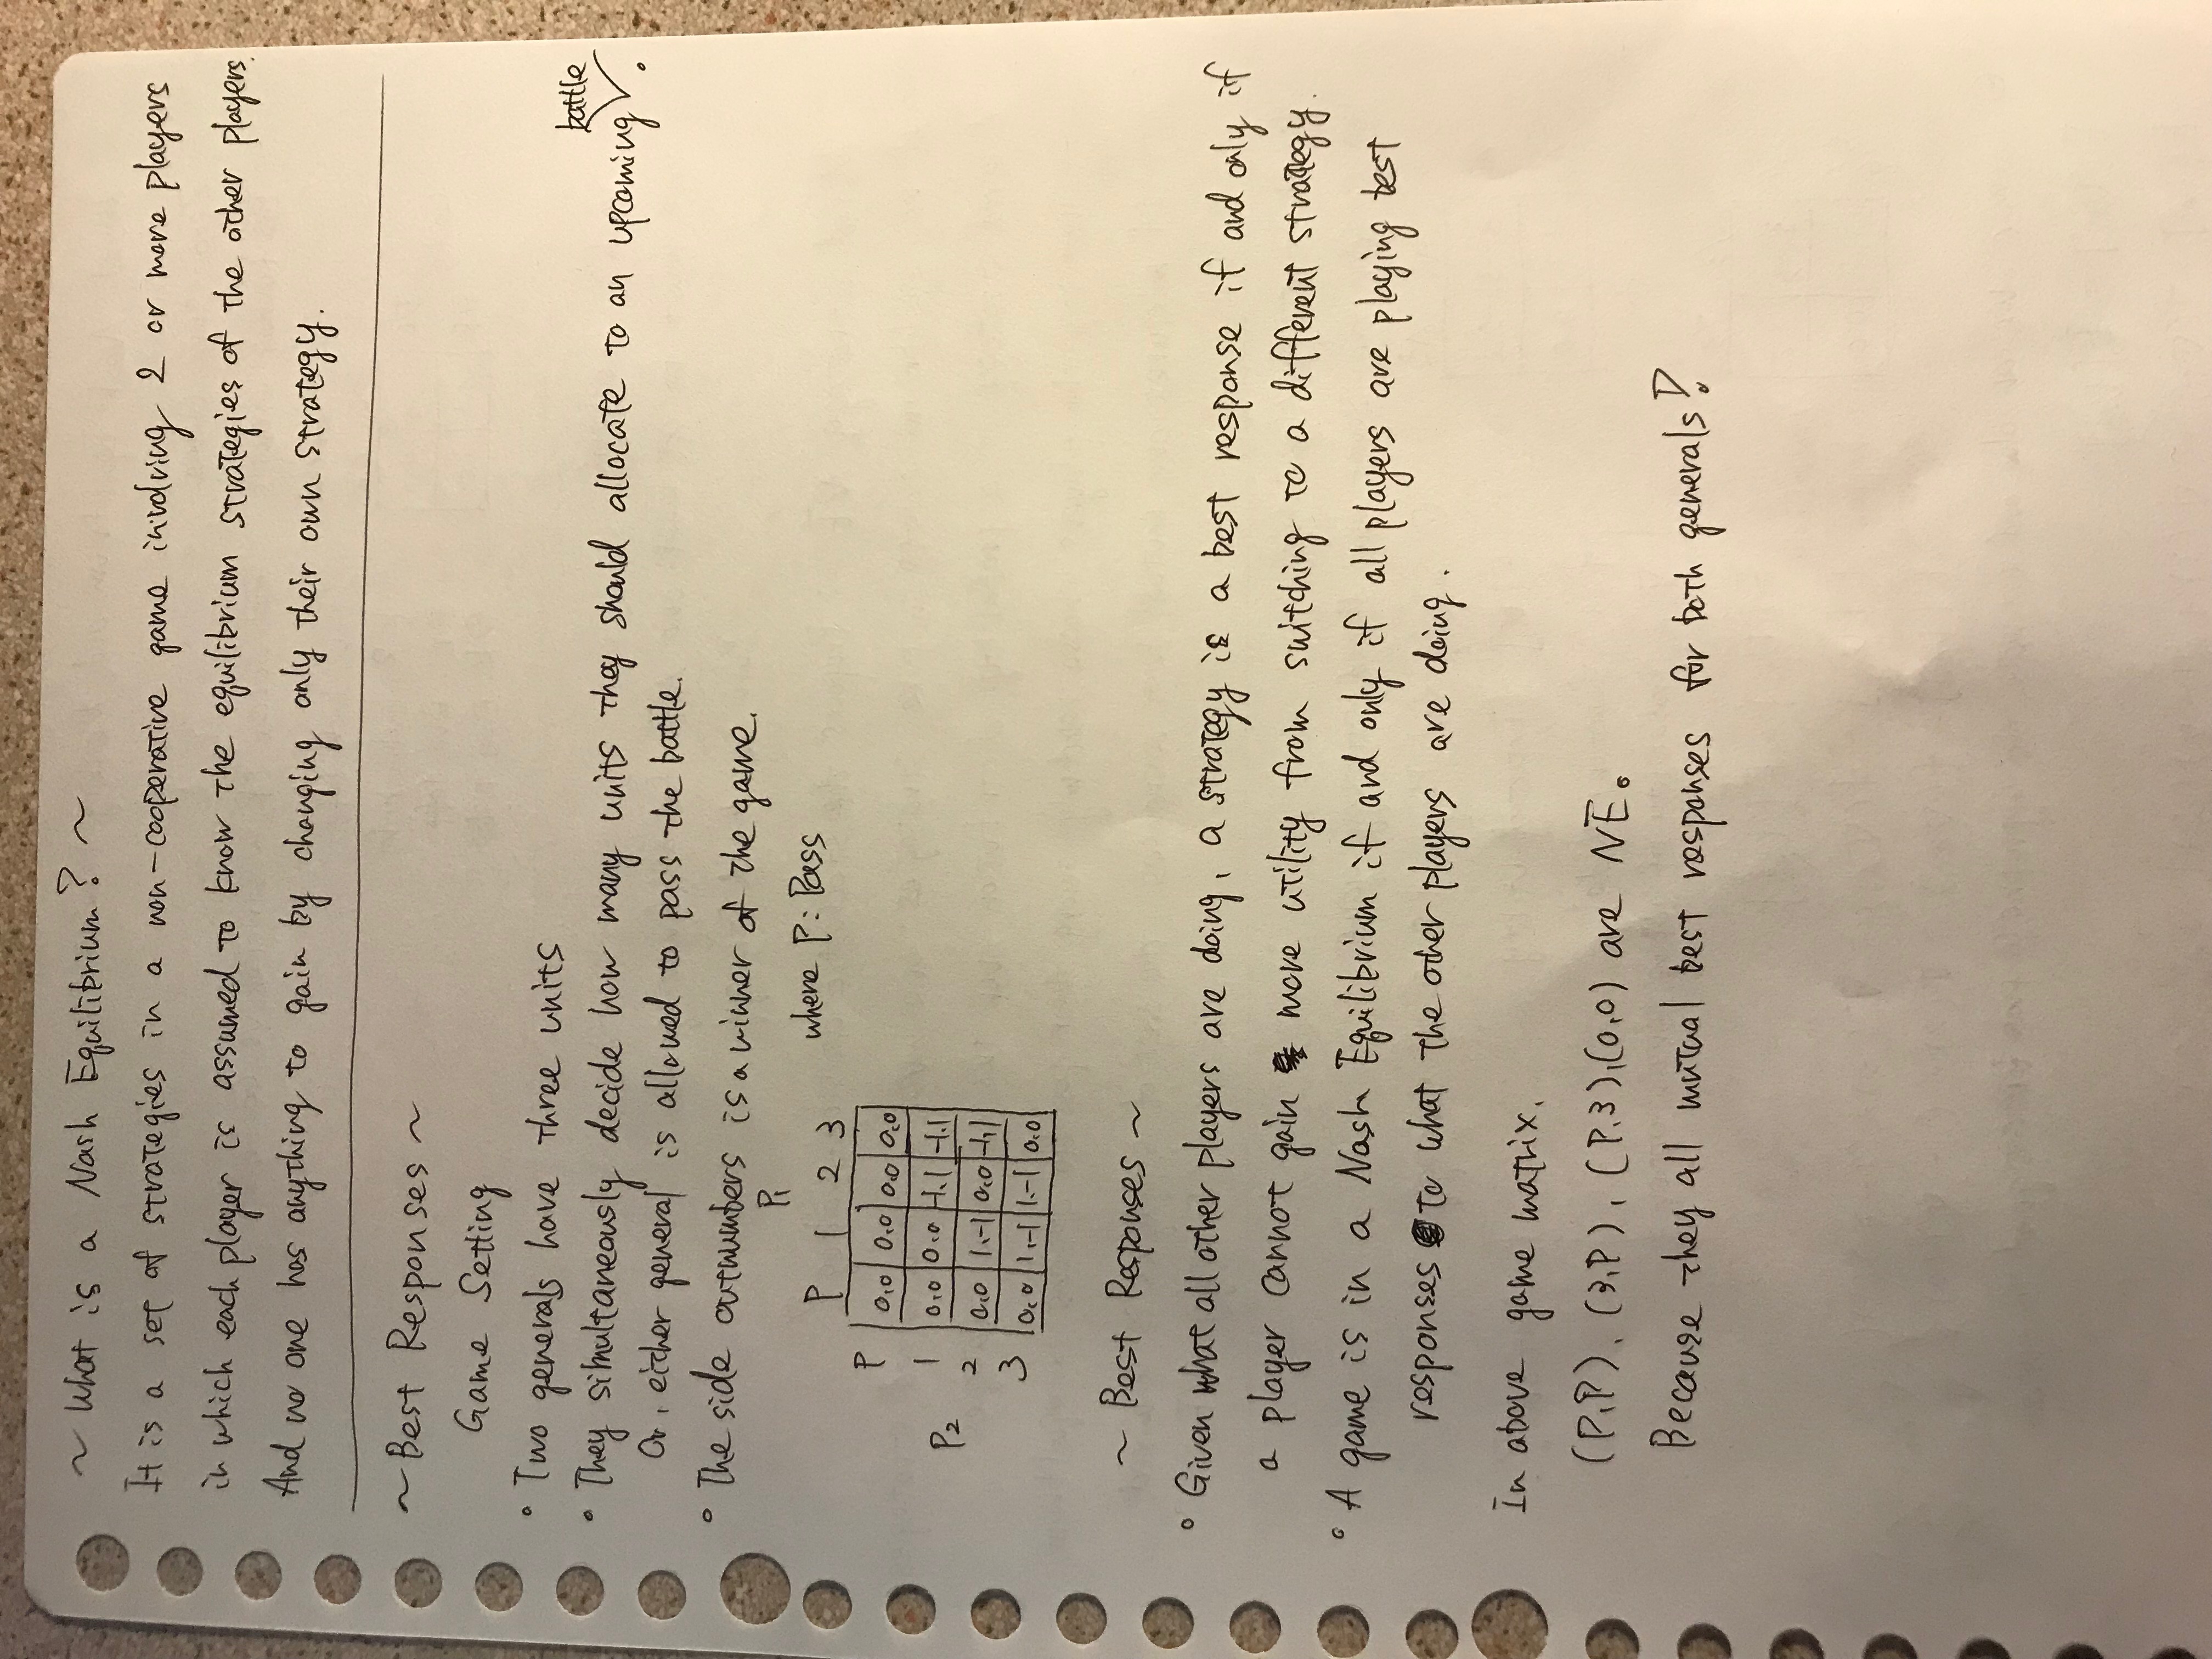 ~ What is a Nash Equilibrium? ~
It is a set of strategies in a non-cooperative game involving 2 or more players
in which each player is assumed to know the equilibrium strategies of the other players.
And no one has anything to gain by changing only their own strategy.
~ Best Responses ~
Game Setting
• Two generals have three units
• They simultaneously decide how many units they should allocate to an upcoming battle.
Or, either general is allowed to pass the battle.
• The side outnumbers is a winner of the game.
P1
where P: Pass
P 1 2 3
P 0,0 0,0 0,0 0,0
1 0,0 0,0 -1,1 -1,1
P2
2 0,0 1,-1 0,0 -1,1
3 0,0 1,-1 1,-1 0,0
~ Best Responses ~
• Given what all other players are doing, a strategy is a best response if and only if
a player cannot gain more utility from switching to a different strategy.
• A game is in a Nash Equilibrium if and only if all players are playing best
responses to what the other players are doing.
In above game matrix,
(P,P), (3,P), (P,3),(0,0) are NE.
Because they all mutual best responses for both generals!